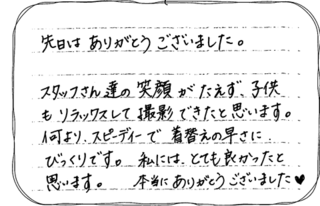 先日は ありがとう ございました。
スタッフさん達の 笑顔 が たえず、子供
も リラックスして 撮影 できた と思います。
何より、スピーディーで 着替えの早さに
びっくりです。 私には、とても良かったと
思います。 本当に ありがとう ございました♥